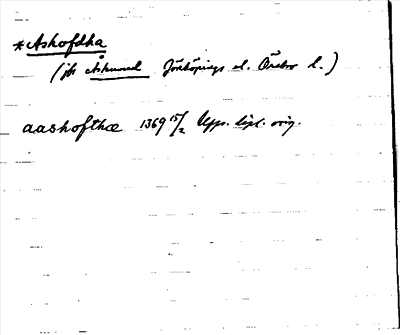 *Åshofdha
(jfr Åshuvud Jönköpings el. Örebro l.)
aashofthæ 1369 15/2 Upps. dipl. orig.